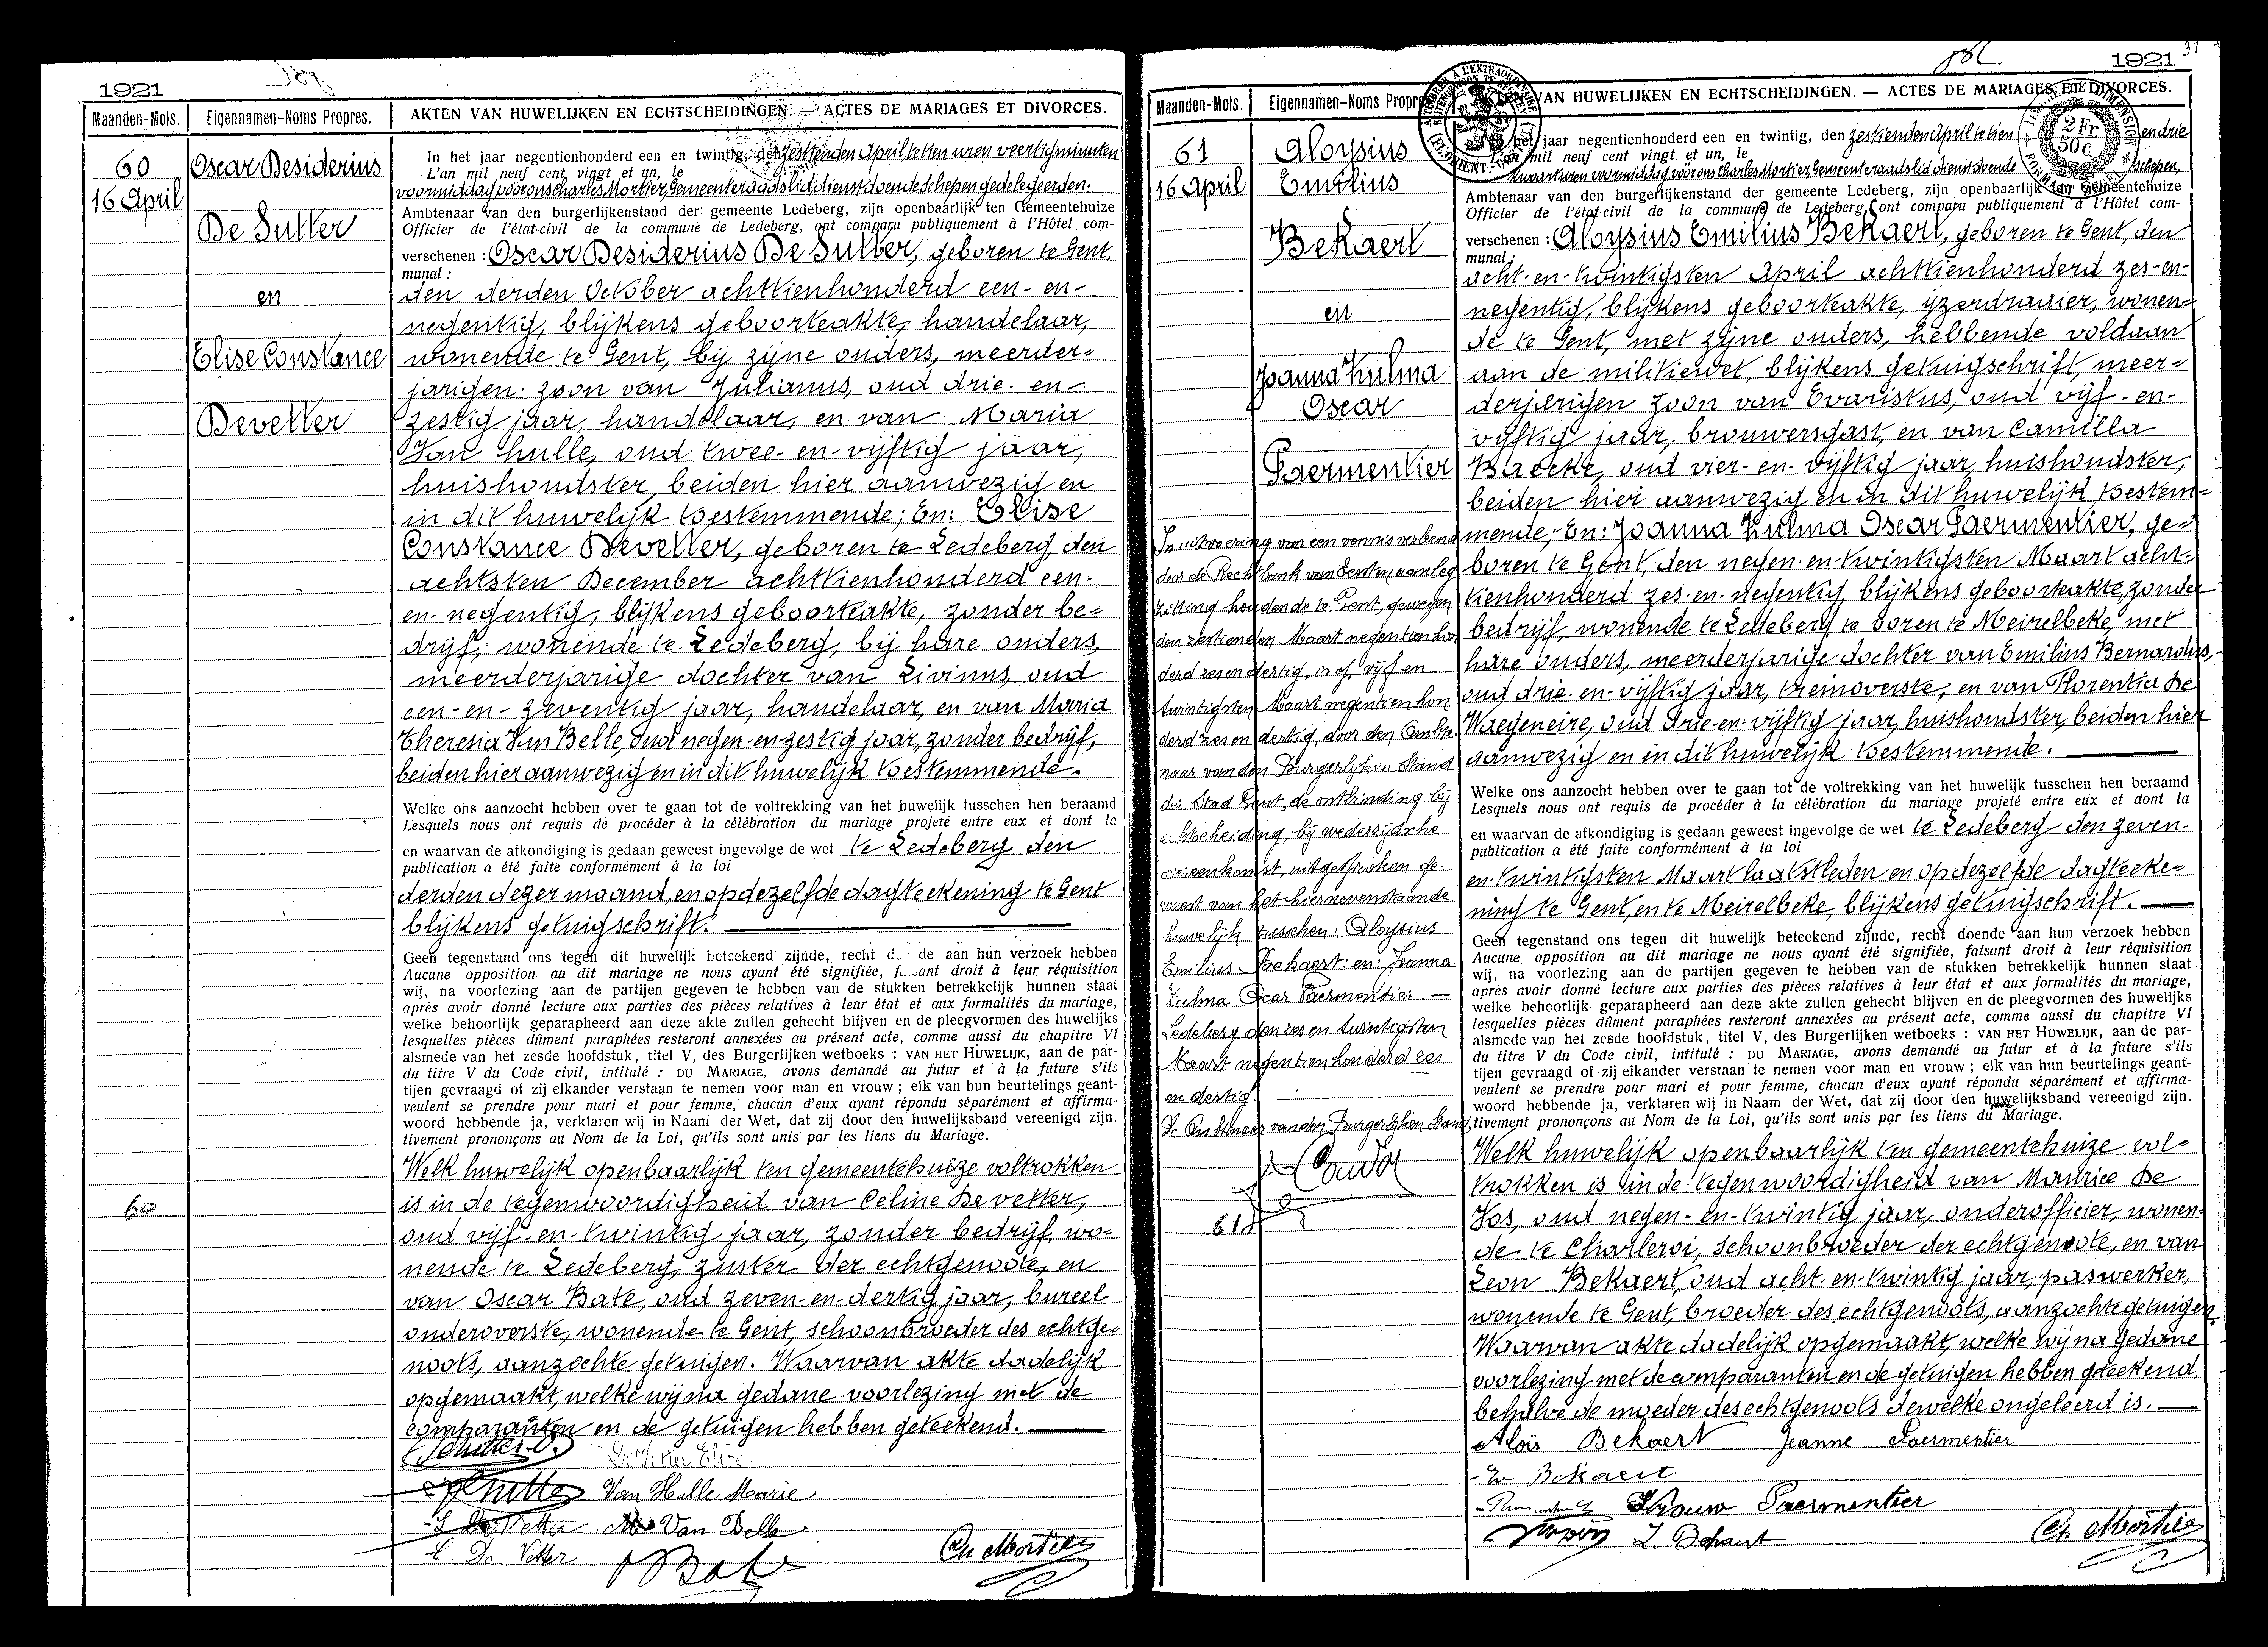 1921
Maanden-Mois.
Eigennamen-Noms Propres.
AKTEN VAN HUWELIJKEN EN ECHTSCHEIDINGEN. — ACTES DE MARIAGES ET DIVORCES.
60
16 April
Oscar Desiderius
De Sutter
en
Elise Constance
Devetter
60
In het jaar negentienhonderd een en twintig, den zestienden April te tien uren veertig minuten
L'an mil neuf cent vingt et un, le
voormiddag, voor ons Charles Mortier, Gemeenteraadslid, dienstdoende schepen gedelegeerden.
Ambtenaar van den burgerlijkenstand der gemeente Ledeberg, zijn openbaarlijk ten Gemeentehuize
Officier de l'état-civil de la commune de Ledeberg, ont comparu publiquement à l'Hôtel com-
verschenen : Oscar Desiderius De Sutter, geboren te Gent,
munal :
den derden October achttienhonderd een- en-
negentig, blijkens geboorteakte, handelaar,
wonende te Gent, bij zijne ouders, meerder-
jarigen zoon van Julianus, oud drie- en-
zestig jaar, handelaar, en van Maria
Van Hulle, oud twee- en- vijftig jaar,
huishoudster, beiden hier aanwezig en
in dit huwelijk toestemmende; En: Elise
Constance Devetter, geboren te Ledeberg den
achtsten December achttienhonderd een-
en- negentig, blijkens geboorteakte, zonder be-
drijf, wonende te Ledeberg, bij hare ouders,
meerderjarige dochter van Livinus, oud
een- en- zeventig jaar, handelaar, en van Maria
Theresia Van Belle, oud negen- en- zestig jaar, zonder bedrijf,
beiden hier aanwezig en in dit huwelijk toestemmende.
Welke ons aanzocht hebben over te gaan tot de voltrekking van het huwelijk tusschen hen beraamd
Lesquels nous ont requis de procéder à la célébration du mariage projeté entre eux et dont la
en waarvan de afkondiging is gedaan geweest ingevolge de wet te Ledeberg den
publication a été faite conformément à la loi
derden dezer maand, en op dezelfde dagteekening te Gent
blijkens getuigschrift.
Geen tegenstand ons tegen dit huwelijk beteekend zijnde, recht d de aan hun verzoek hebben
Aucune opposition au dit mariage ne nous ayant été signifiée, f sant droit à leur réquisition
wij, na voorlezing aan de partijen gegeven te hebben van de stukken betrekkelijk hunnen staat
après avoir donné lecture aux parties des pièces relatives à leur état et aux formalités du mariage,
welke behoorlijk geparapheerd aan deze akte zullen gehecht blijven en de pleegvormen des huwelijks
lesquelles pièces dûment paraphées resteront annexées au présent acte, comme aussi du chapitre VI
alsmede van het zesde hoofdstuk, titel V, des Burgerlijken wetboeks : VAN HET HUWELIJK, aan de par-
du titre V du Code civil, intitulé : DU MARIAGE, avons demandé au futur et à la future s'ils
tijen gevraagd of zij elkander verstaan te nemen voor man en vrouw ; elk van hun beurtelings geant-
veulent se prendre pour mari et pour femme, chacun d'eux ayant répondu séparément et affirma-
woord hebbende ja, verklaren wij in Naam der Wet, dat zij door den huwelijksband vereenigd zijn.
tivement prononçons au Nom de la Loi, qu'ils sont unis par les liens du Mariage.
Welk huwelijk openbaarlijk ten gemeentehuize voltrokken
is in de tegenwoordigheid van Celine Devetter,
oud vijf- en- twintig jaar, zonder bedrijf, wo-
nende te Ledeberg, zuster der echtgenoote, en
van Oscar Bate, oud zeven- en- dertig jaar, bureel
onderoverste, wonende te Gent, schoonbroeder des echtge-
noots, aanzochte getuigen. Waarvan akte dadelijk
opgemaakt, welke wij na gedane voorlezing met de
comparanten en de getuigen hebben geteekend.
De Vetter Elise
Van Hulle Marie
L De Vetter M Van Belle
C. De Vetter
Bate
Ch Mortier
1921
31
Maanden-Mois.
Eigennamen-Noms Propre
VAN HUWELIJKEN EN ECHTSCHEIDINGEN. — ACTES DE MARIAGES ET DIVORCES.
2 Fr.
50 c.
61
16 April
Aloysius
Emilius
Bekaert
en
Joanna Zulma
Oscar
Paermentier
In uitvoering van een vonnis verleend
door de Rechtbank van Eersten aanleg
zitting houdende te Gent, gewezen
den zestienden Maart negentien hon
derd zes en dertig, is op vijf en
twintigsten Maart negentien hon
derd zes en dertig, door den Ambte-
naar van den Burgerlijken Stand
der Stad Gent, de ontbinding bij
echtscheiding, bij wederzijdsche
overeenkomst, uitgesproken ge-
weest van het hiernevenstaande
huwelijk tusschen: Aloysius
Emilius Bekaert en: Joanna
Zulma Oscar Paermentier —
Ledeberg den zes en twintigsten
Maart negentien honderd zes
en dertig.
De Ambtenaar van den Burgerlijken Stand,
61
het jaar negentienhonderd een en twintig, den zestienden April te tien en drie
L'an mil neuf cent vingt et un, le
kwaart uren voormiddag voor ons Charles Mortier, Gemeenteraadslid dienstdoende schepen,
Ambtenaar van den burgerlijkenstand der gemeente Ledeberg, zijn openbaarlijk ten Gemeentehuize
Officier de l'état-civil de la commune de Ledeberg, ont comparu publiquement à l'Hôtel com-
verschenen : Aloysius Emilius Bekaert, geboren te Gent, den
munal :
acht- en- twintigsten April achttienhonderd zes- en-
negentig, blijkens geboorteakte, ijzerdraaier, wonen-
de te Gent, met zijne ouders, hebbende voldaan
aan de militiewet, blijkens getuigschrift, meer-
derjarigen zoon van Evaristus, oud vijf- en-
vijftig jaar, brouwersgast, en van Camilla
Baecke, oud vier- en- vijftig jaar, huishoudster,
beiden hier aanwezig en in dit huwelijk toestem-
mende; En: Joanna Zulma Oscar Paermentier, ge-
boren te Gent, den negen- en- twintigsten Maart acht-
tienhonderd zes- en- negentig, blijkens geboorteakte, zonder
bedrijf, wonende te Ledeberg te voren te Meirelbeke, met
hare ouders, meerderjarige dochter van Emilius Bernardus,
oud drie- en- vijftig jaar, treinoverste, en van Florentia De
Waegeneire, oud drie- en- vijftig jaar, huishoudster, beiden hier
aanwezig en in dit huwelijk toestemmende.
Welke ons aanzocht hebben over te gaan tot de voltrekking van het huwelijk tusschen hen beraamd
Lesquels nous ont requis de procéder à la célébration du mariage projeté entre eux et dont la
en waarvan de afkondiging is gedaan geweest ingevolge de wet te Ledeberg den zeven-
publication a été faite conformément à la loi
en- twintigsten Maart laatstleden en op dezelfde dagteeke-
ning te Gent, en te Meirelbeke, blijkens getuigschrift.
Geen tegenstand ons tegen dit huwelijk beteekend zijnde, recht doende aan hun verzoek hebben
Aucune opposition au dit mariage ne nous ayant été signifiée, faisant droit à leur réquisition
wij, na voorlezing aan de partijen gegeven te hebben van de stukken betrekkelijk hunnen staat
après avoir donné lecture aux parties des pièces relatives à leur état et aux formalités du mariage,
welke behoorlijk geparapheerd aan deze akte zullen gehecht blijven en de pleegvormen des huwelijks
lesquelles pièces dûment paraphées resteront annexées au présent acte, comme aussi du chapitre VI
alsmede van het zesde hoofdstuk, titel V, des Burgerlijken wetboeks : VAN HET HUWELIJK, aan de par-
du titre V du Code civil, intitulé : DU MARIAGE, avons demandé au futur et à la future s'ils
tijen gevraagd of zij elkander verstaan te nemen voor man en vrouw ; elk van hun beurtelings geant-
veulent se prendre pour mari et pour femme, chacun d'eux ayant répondu séparément et affirma-
woord hebbende ja, verklaren wij in Naam der Wet, dat zij door den huwelijksband vereenigd zijn.
tivement prononçons au Nom de la Loi, qu'ils sont unis par les liens du Mariage.
Welk huwelijk openbaarlijk ten gemeentehuize vol-
trokken is in de tegenwoordigheid van Maurice De
Vos, oud negen- en- twintig jaar, onderofficier, wonen-
de te Charleroi, schoonbroeder der echtgenoote, en van
Leon Bekaert, oud acht- en- twintig jaar, paswerker,
wonende te Gent, broeder des echtgenoots, aanzochte getuigen.
Waarvan akte dadelijk opgemaakt, welke wij na gedane
voorlezing met de comparanten en de getuigen hebben geteekend,
behalve de moeder des echtgenoots dewelke ongeleerd is.
Aloïs Bekaert Jeanne Paermentier
Ev Bekaert
Vrouw Paermentier
L. Bekaert
Ch Mortier